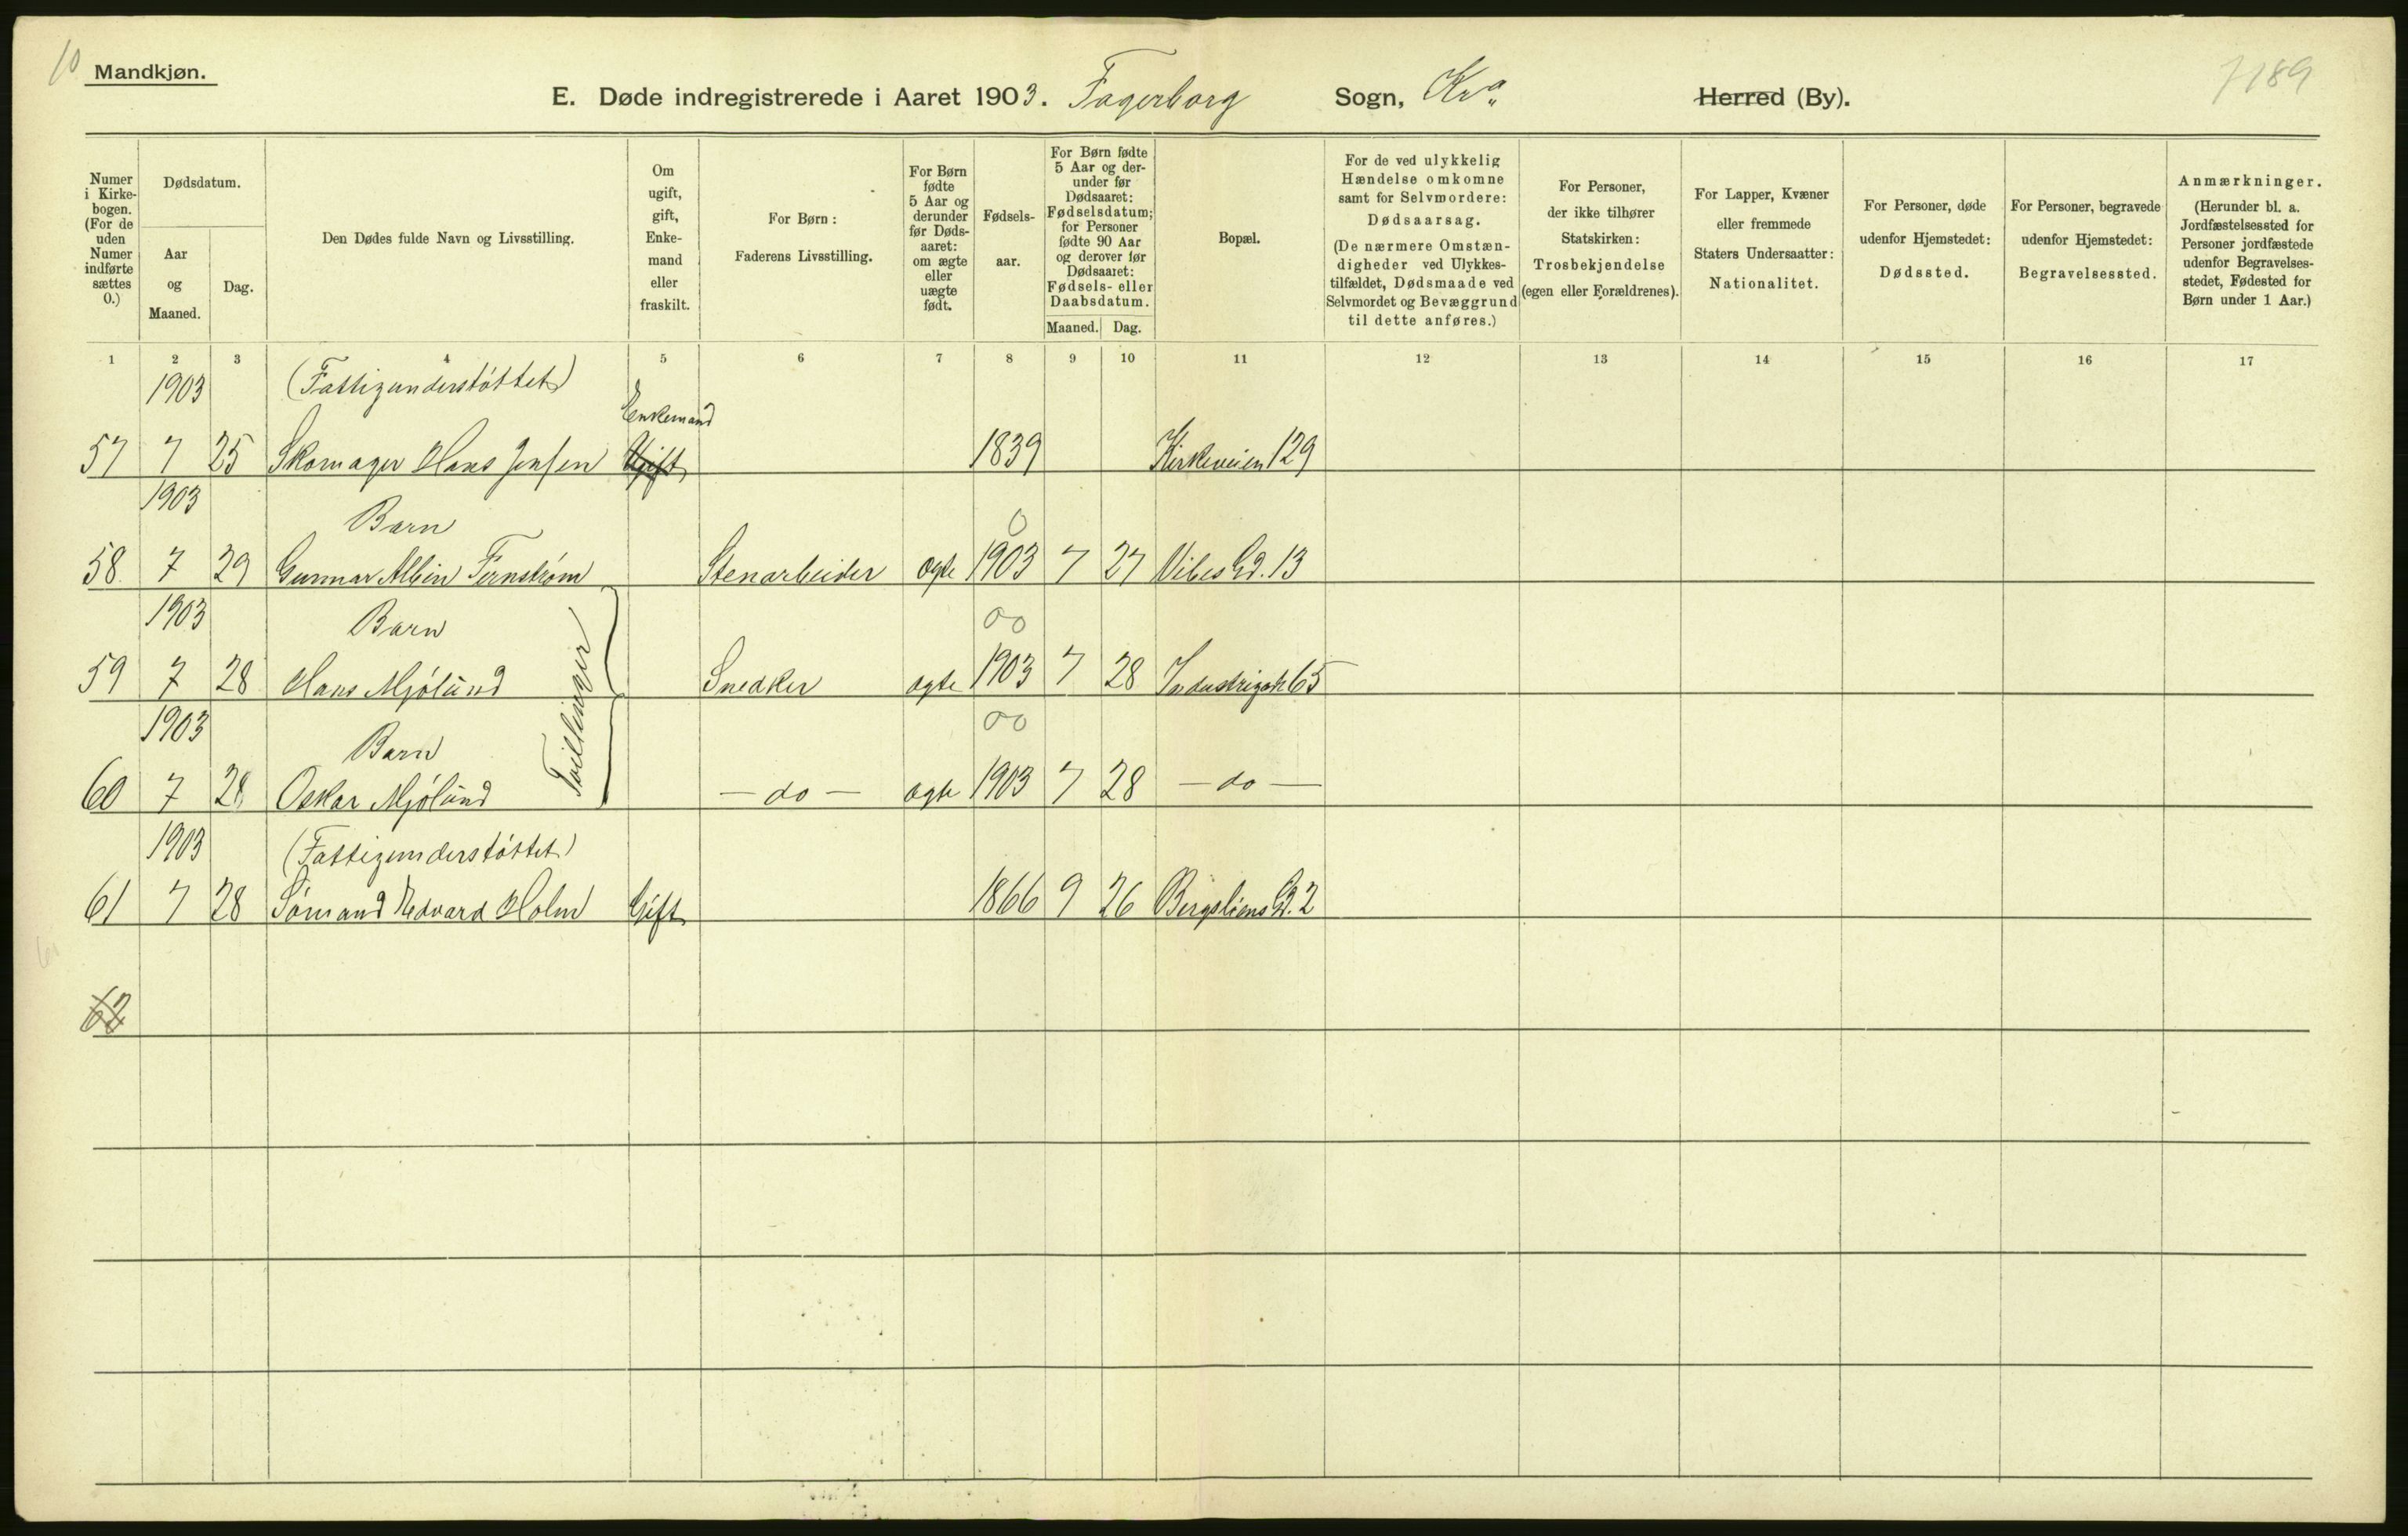 10
Mandkjøn.
E. Døde indregistrerede i Aaret 1903. Fagerborg Sogn, Kra Herred (By).
7189
Numer i Kirkebogen. (For de uden Numer indførte sættes 0.)
Dødsdatum.
Aar og Maaned.
Dag.
Den Dødes fulde Navn og Livsstilling.
Om ugift, gift, Enkemand eller fraskilt.
For Børn: Faderens Livsstilling.
For Børn fødte 5 Aar og derunder før Dødsaaret: om ægte eller uægte født.
Fødselsaar.
For Børn fødte 5 Aar og derunder før Dødsaaret: Fødselsdatum; for Personer fødte 90 Aar og derover før Dødsaaret: Fødsels- eller Daabsdatum.
Maaned. Dag.
Bopæl.
For de ved ulykkelig Hændelse omkomne samt for Selvmordere: Dødsaarsag. (De nærmere Omstændigheder ved Ulykkestilfældet, Dødsmaade ved Selvmordet og Bevæggrund til dette anføres.)
For Personer, der ikke tilhører Statskirken: Trosbekjendelse (egen eller Forældrenes).
For Lapper, Kvæner eller fremmede Staters Undersaatter: Nationalitet.
For Personer, døde udenfor Hjemstedet: Dødssted.
For Personer, begravede udenfor Hjemstedet: Begravelsessted.
Anmærkninger. (Herunder bl. a. Jordfæstelsessted for Personer jordfæstede udenfor Begravelsesstedet, Fødested for Børn under 1 Aar.)
1 2 3 4 5 6 7 8 9 10 11 12 13 14 15 16 17
1903 (Fattigunderstøttet)
Enkemand
57 7 25 Skomager Hans Jensen Ugift 1839 Kirkeveien 129
1903 Barn 0
58. 7 29 Gunnar Albin Fernstrøm Stenarbeider ægte 1903 7 27 Vibes Gd. 13
1903 Barn 00
59 7 28 Hans Mjölund Snedker ægte 1903 7 28 Industrigat 65
Tvillinger
1903 Barn 00
60 7 28 Oskar Mjölund - do - ægte 1903 7 28 - do -
1903 (Fattigunderstøttet)
61 7 28 Sømand Edvard Holm Gift 1866 9 26 Bergsliens Gd. 2
61
62